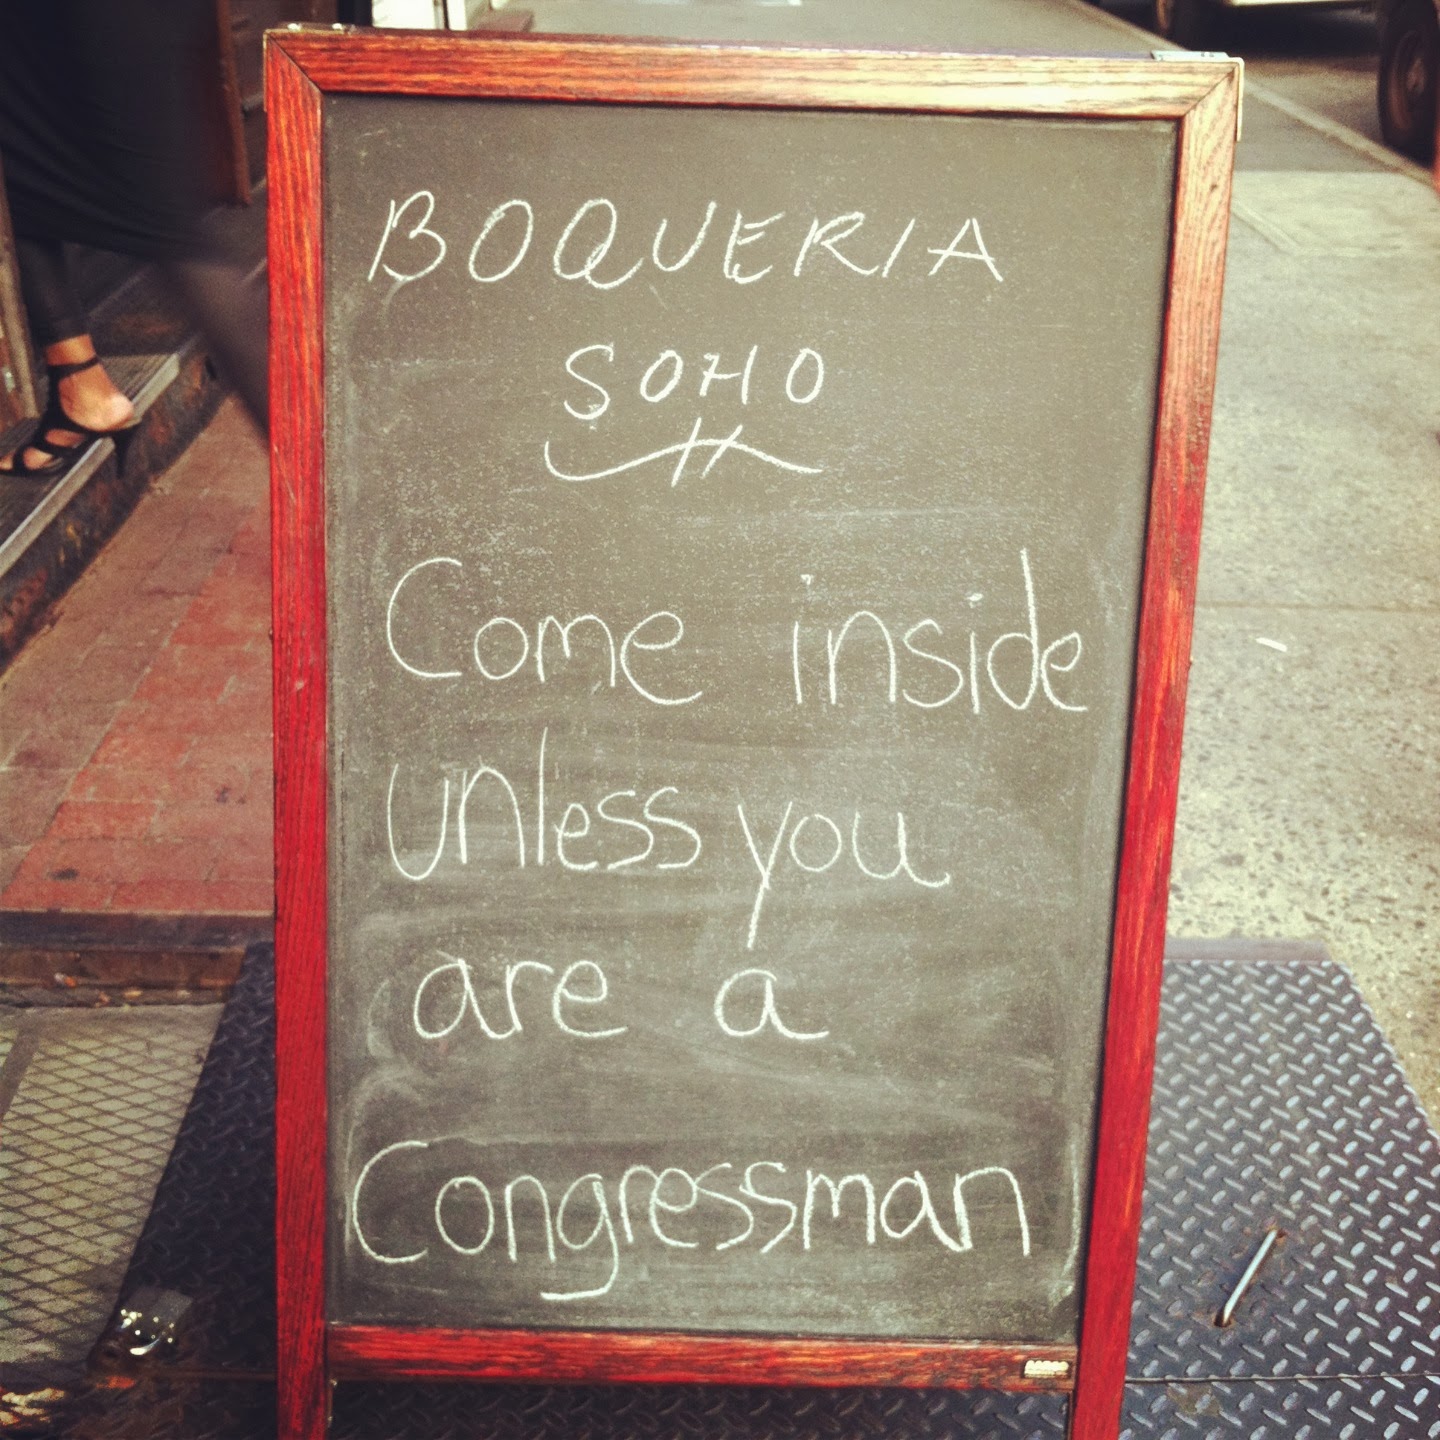 BOQUERIA
SOHO
Come inside
unless you
are a
Congressman